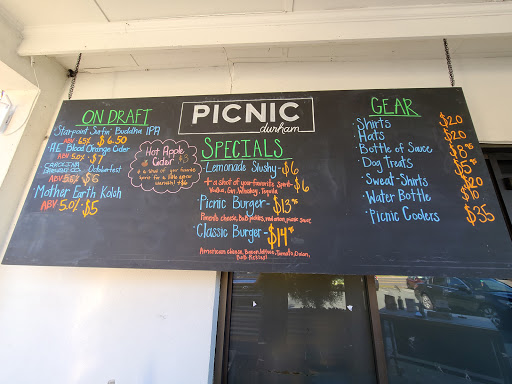 ON DRAFT
Starpoint Surfin' Buddha IPA
ABV 6.5% $6.50
A.E. Blood Orange Cider
ABV 5.0% $7
Carolina
Brewing Co. Octoberfest
$6
Mother Earth Kolsh
ABV 5.0% $5
Hot Apple
Cider $3
+ a shot of your favorite
+$6
PICNIC
durham
SPECIALS
· Lemonade Slushy - $6
+ a shot of your favorite Spirit - $6
Vodka, Gin, Whiskey, Tequila
· Picnic Burger - $13
Pimento cheese, B&B pickles, red onion, picnic sauce
· Classic Burger - $14
American cheese, Bacon, lettuce, Tomato, Onion,
GEAR
· Shirts $20
· Hats $20
· Bottle of Sauce $8
· Dog Treats $5
· Sweat-Shirts
· Water Bottle $10
· Picnic Coolers $35